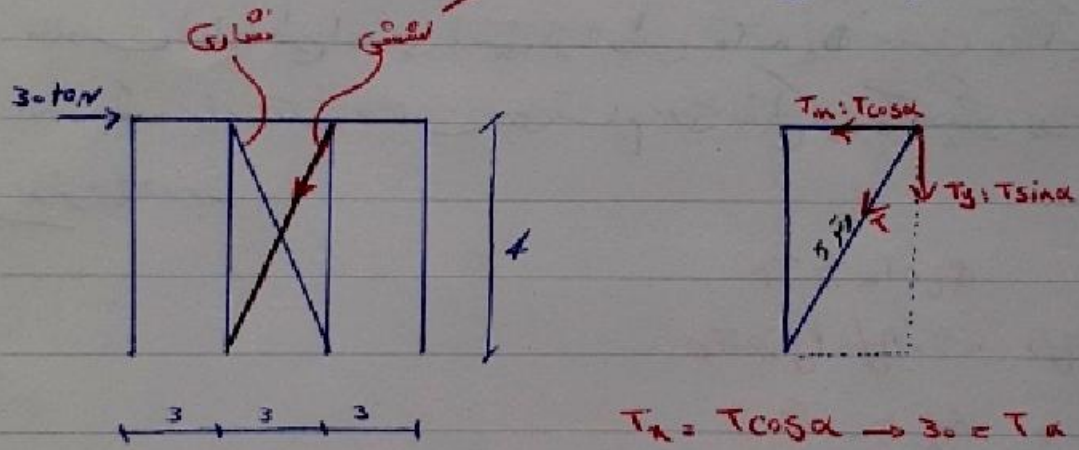 فشاری
کششی
30 ton
4
3 3 3
Tx = Tcosα
Ty = Tsinα
T
Tx = Tcosα → 30 = T x